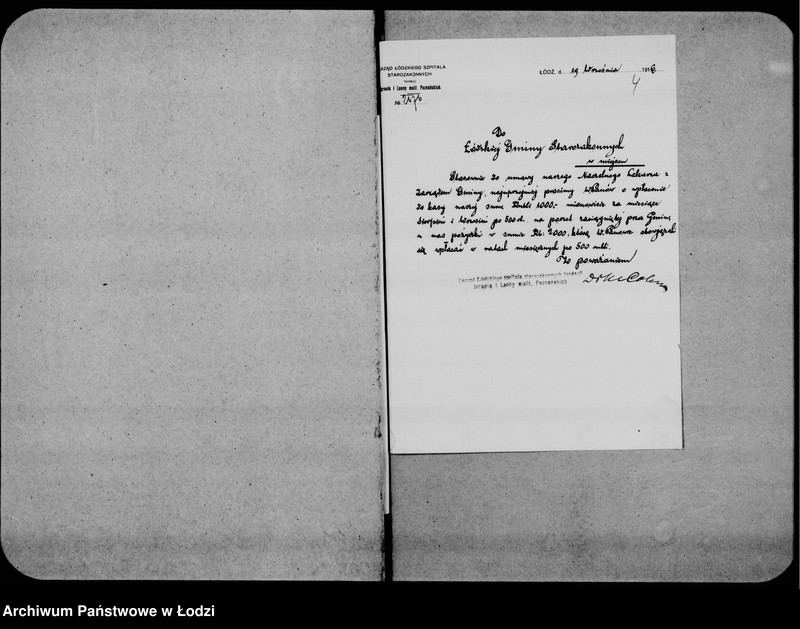 ZARZĄD ŁÓDZKIEGO SZPITALA
STAROZAKONNYCH
fundacji
Izraela i Leony małż. Poznańskich
№
ŁÓDŹ, d. 19 Września 1916
4
Do
Łódzkiej Gminy Starozakonnych
w miejscu
Stosownie do umowy naszego Naczelnego Lekarza z
Zarządem Gminy, najuprzejmiej prosimy WPanów o wpłacenie
do kasy naszej sumę Rubli 1000,- mianowicie za miesiące
Sierpień i Wrzesień po 500 r. na poczet zaciągniętej przez Gminę
u nas pożyczki w sumie Rb: 2000, którą W.Panowie obowiązali
się wpłacać w ratach miesięcznych po 500 rubli.
Z poważaniem
Zarząd Łódzkiego szpitala starozakonnych fundacji
Izraela i Leony małż. Poznańskich